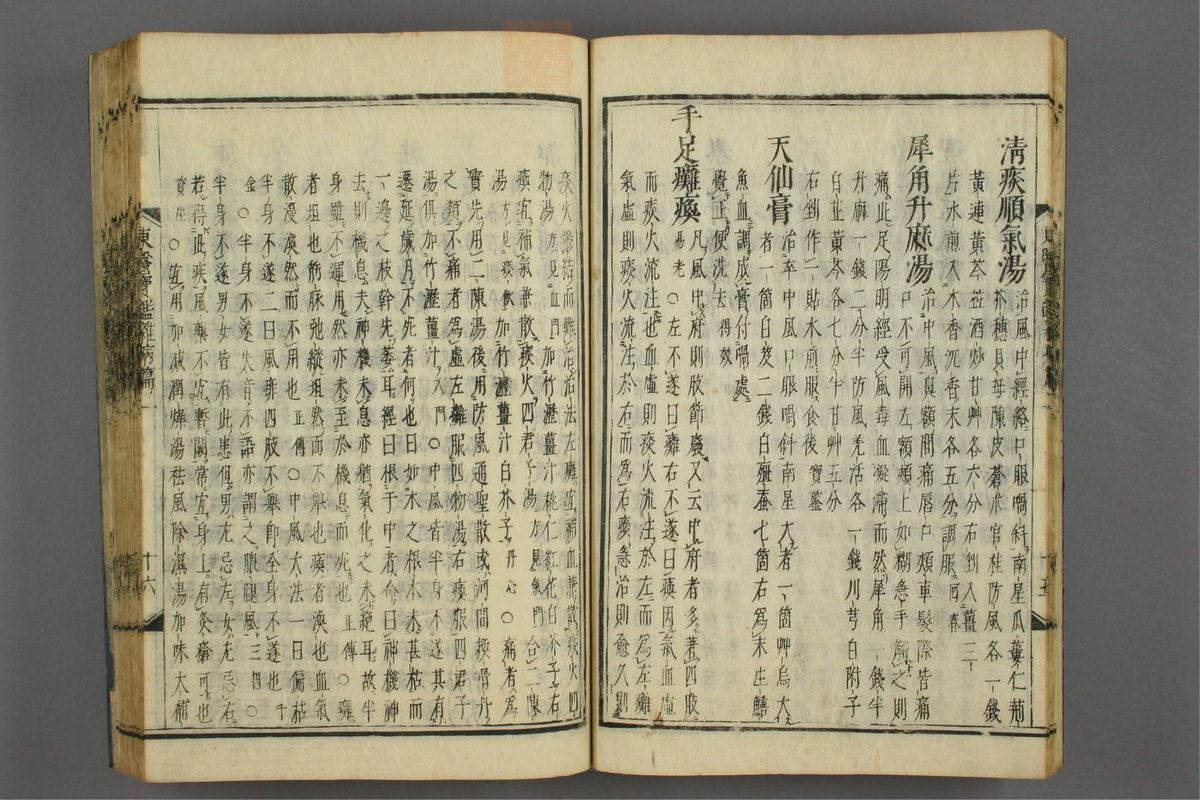 清痰順氣湯 治風中經絡口眼喎斜南星瓜蔞仁荊
芥穗貝母陳皮蒼朮官桂防風各一錢
黃連黃芩並酒炒甘艸各六分右剉入薑三
片水煎入木香沉香末各五分調服 回春
犀角升麻湯 治中風鼻額間痛唇口頰車髮際皆痛
口不可開左額頰上如糊急手觸之則
痛此足陽明經受風毒血凝滯而然犀角一錢半
升麻一錢二分半防風羌活各一錢川芎白附子
白芷黃芩各七分半甘艸五分
右剉作一貼水煎服食後 寶鑑
天仙膏 治卒中風口眼喎斜南星大者一箇艸烏大
者一箇白芨二錢白殭蚕七箇右爲末生鱔
魚血調成膏付喎處
覺正便洗去 得效
手足癱瘓 凡風中府則肢節廢又云中府者多著四肢
易老○左不遂曰癱右不遂曰瘓因氣血虛
而痰火流注也血虛則痰火流注於左而爲左癱
氣虛則痰火流注於右而爲右瘓急治則愈久則
十五
痰火鬱結而難治治法左癱宜補血兼散痰火四
物湯方見血門加竹瀝薑汁桃仁紅花白芥子右
瘓宜補氣兼散痰火四君子湯方見氣門合二陳
湯方見痰飮加竹瀝薑汁白芥子丹心○痛者爲
實先用二陳湯後用防風通聖散或河間換骨丹
之類不痛者爲虛左癱服四物湯右瘓服四君子
湯俱加竹瀝薑汁入門○中風皆半身不遂其有
遷延歲月不死者何也曰如木之根本未甚枯而
一邊之枝幹先萎耳經曰根于中者命曰神機神
去則機息夫神機未息亦猶氣化之未絶耳故半
身雖不運用然亦未至於機息而死也正傳○癱
者坦也筋脉弛縱坦然而不舉也瘓者渙也血氣
散漫渙然而不用也正傳○中風大法一曰偏枯
半身不遂二曰風痱四肢不擧卽全身不遂也千
金○半身不遂失音不語亦謂之腲腿風三四○
半身不遂男女皆有此患但男尤忌左女尤忌右
若得此疾風藥不宜暫闕常宜身上有灸瘡可也
資生○宜用加減潤燥湯祛風除濕湯加味大補
東醫寶鑑雜病篇二
十六